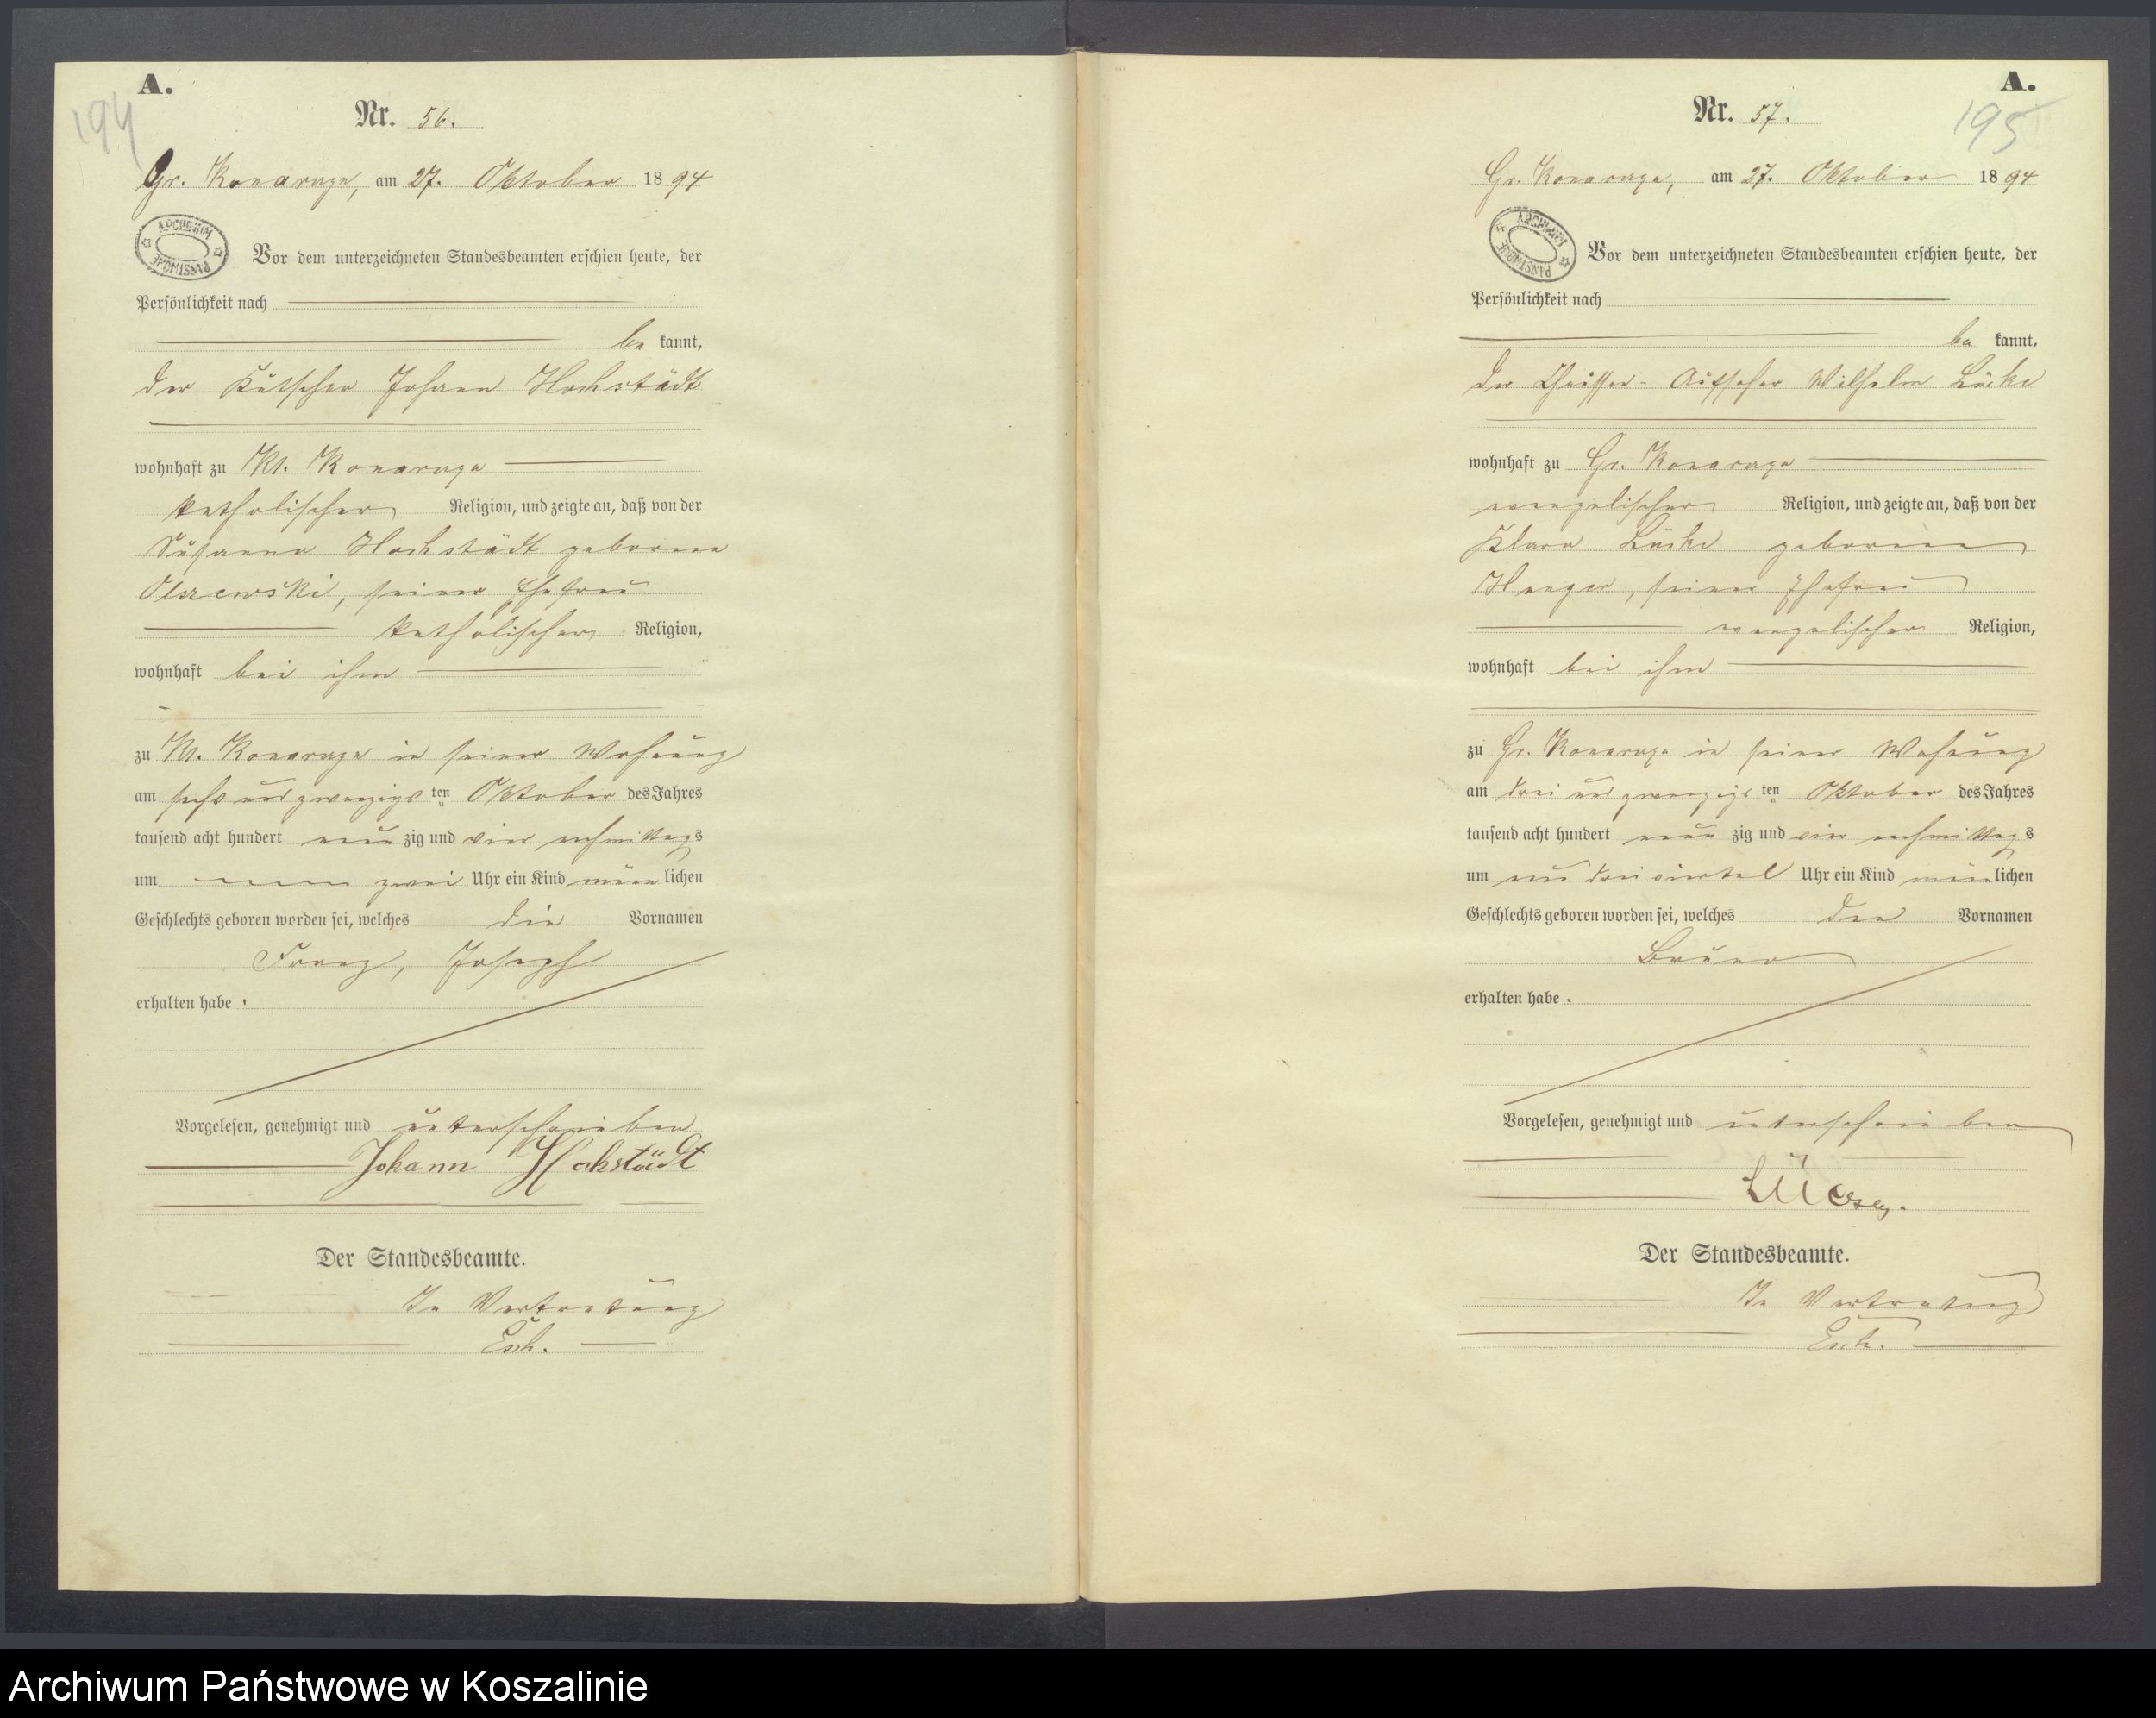 A.
194
Nr. 56.
Gr. Konarzyn, am 27. Oktober 1894
ARCHIWUM PAŃSTWOWE
Vor dem unterzeichneten Standesbeamten erschien heute, der
Persönlichkeit nach
be kannt,
der Kutscher Johann Hochstädt
wohnhaft zu Kl. Konarzyn
katholischer Religion, und zeigte an, daß von der
Susanna Hochstädt geborene
Olszewski, seiner Ehefrau
katholischer Religion,
wohnhaft bei ihm
zu Kl. Konarzyn in seiner Wohnung
am sechs und zwanzigs ten Oktober des Jahres
tausend acht hundert neun zig und vier nachmittags
um zwei Uhr ein Kind männ lichen
Geschlechts geboren worden sei, welches die Vornamen
Franz, Joseph
erhalten habe.
Vorgelesen, genehmigt und unterschrieben
Johann Hochstädt
Der Standesbeamte.
In Vertretung
Esch.
A.
195
Nr. 57.
Gr. Konarzyn, am 27. Oktober 1894
ARCHIWUM PAŃSTWOWE
Vor dem unterzeichneten Standesbeamten erschien heute, der
Persönlichkeit nach
be kannt,
der Chaussee-Aufseher Wilhelm Lücke
wohnhaft zu Gr. Konarzyn
evangelischer Religion, und zeigte an, daß von der
Klara Lücke geborene
seiner Ehefrau
evangelischer Religion,
wohnhaft bei ihm
zu Gr. Konarzyn in seiner Wohnung
am drei und zwanzigs ten Oktober des Jahres
tausend acht hundert neun zig und vier nachmittags
um ein dreiviertel Uhr ein Kind männ lichen
Geschlechts geboren worden sei, welches den Vornamen
Bruno
erhalten habe.
Vorgelesen, genehmigt und unterschrieben
Der Standesbeamte.
In Vertretung
Esch.
Archiwum Państwowe w Koszalinie